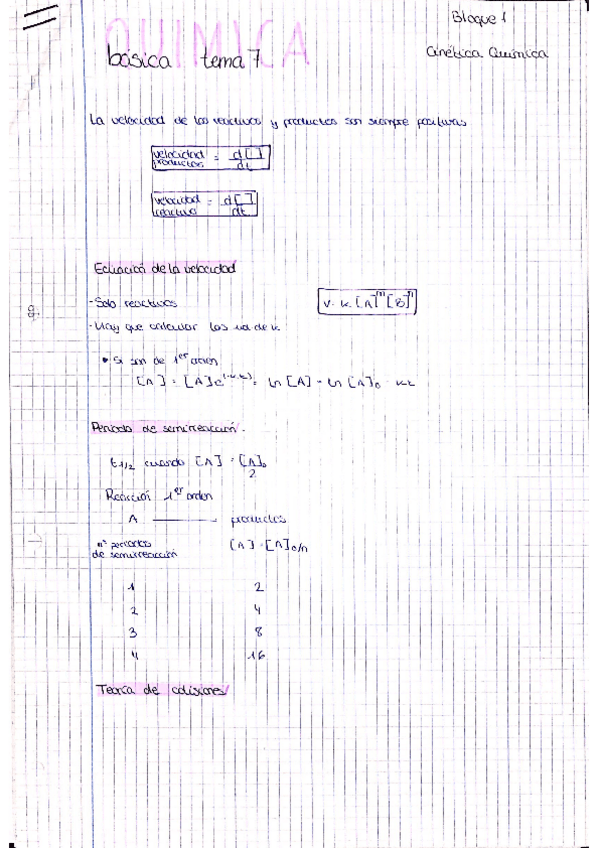 QUIMICA
básica tema 7
Bloque 1
Cinética Química
La velocidad de los reactivos y productos son siempre positivas
velocidad productos = d[ ]/dt
velocidad reactivo = d[ ]/dt
Ecuación de la velocidad
- Solo reactivos
v = k · [A]^m [B]^n
- Hay que calcular los de k
• Si son de 1er orden
[A] = [A]₀e(-k·t) = ln [A] = ln [A]₀ - kt
Periodo de semirreacción.
t1/2 cuando [A] = [A]₀/2
Reacción 1er orden
A ——— productos
nº periodos de semirreacción
[A] = [A]₀/n
1 2
2 4
3 8
4 16
Teoría de colisiones